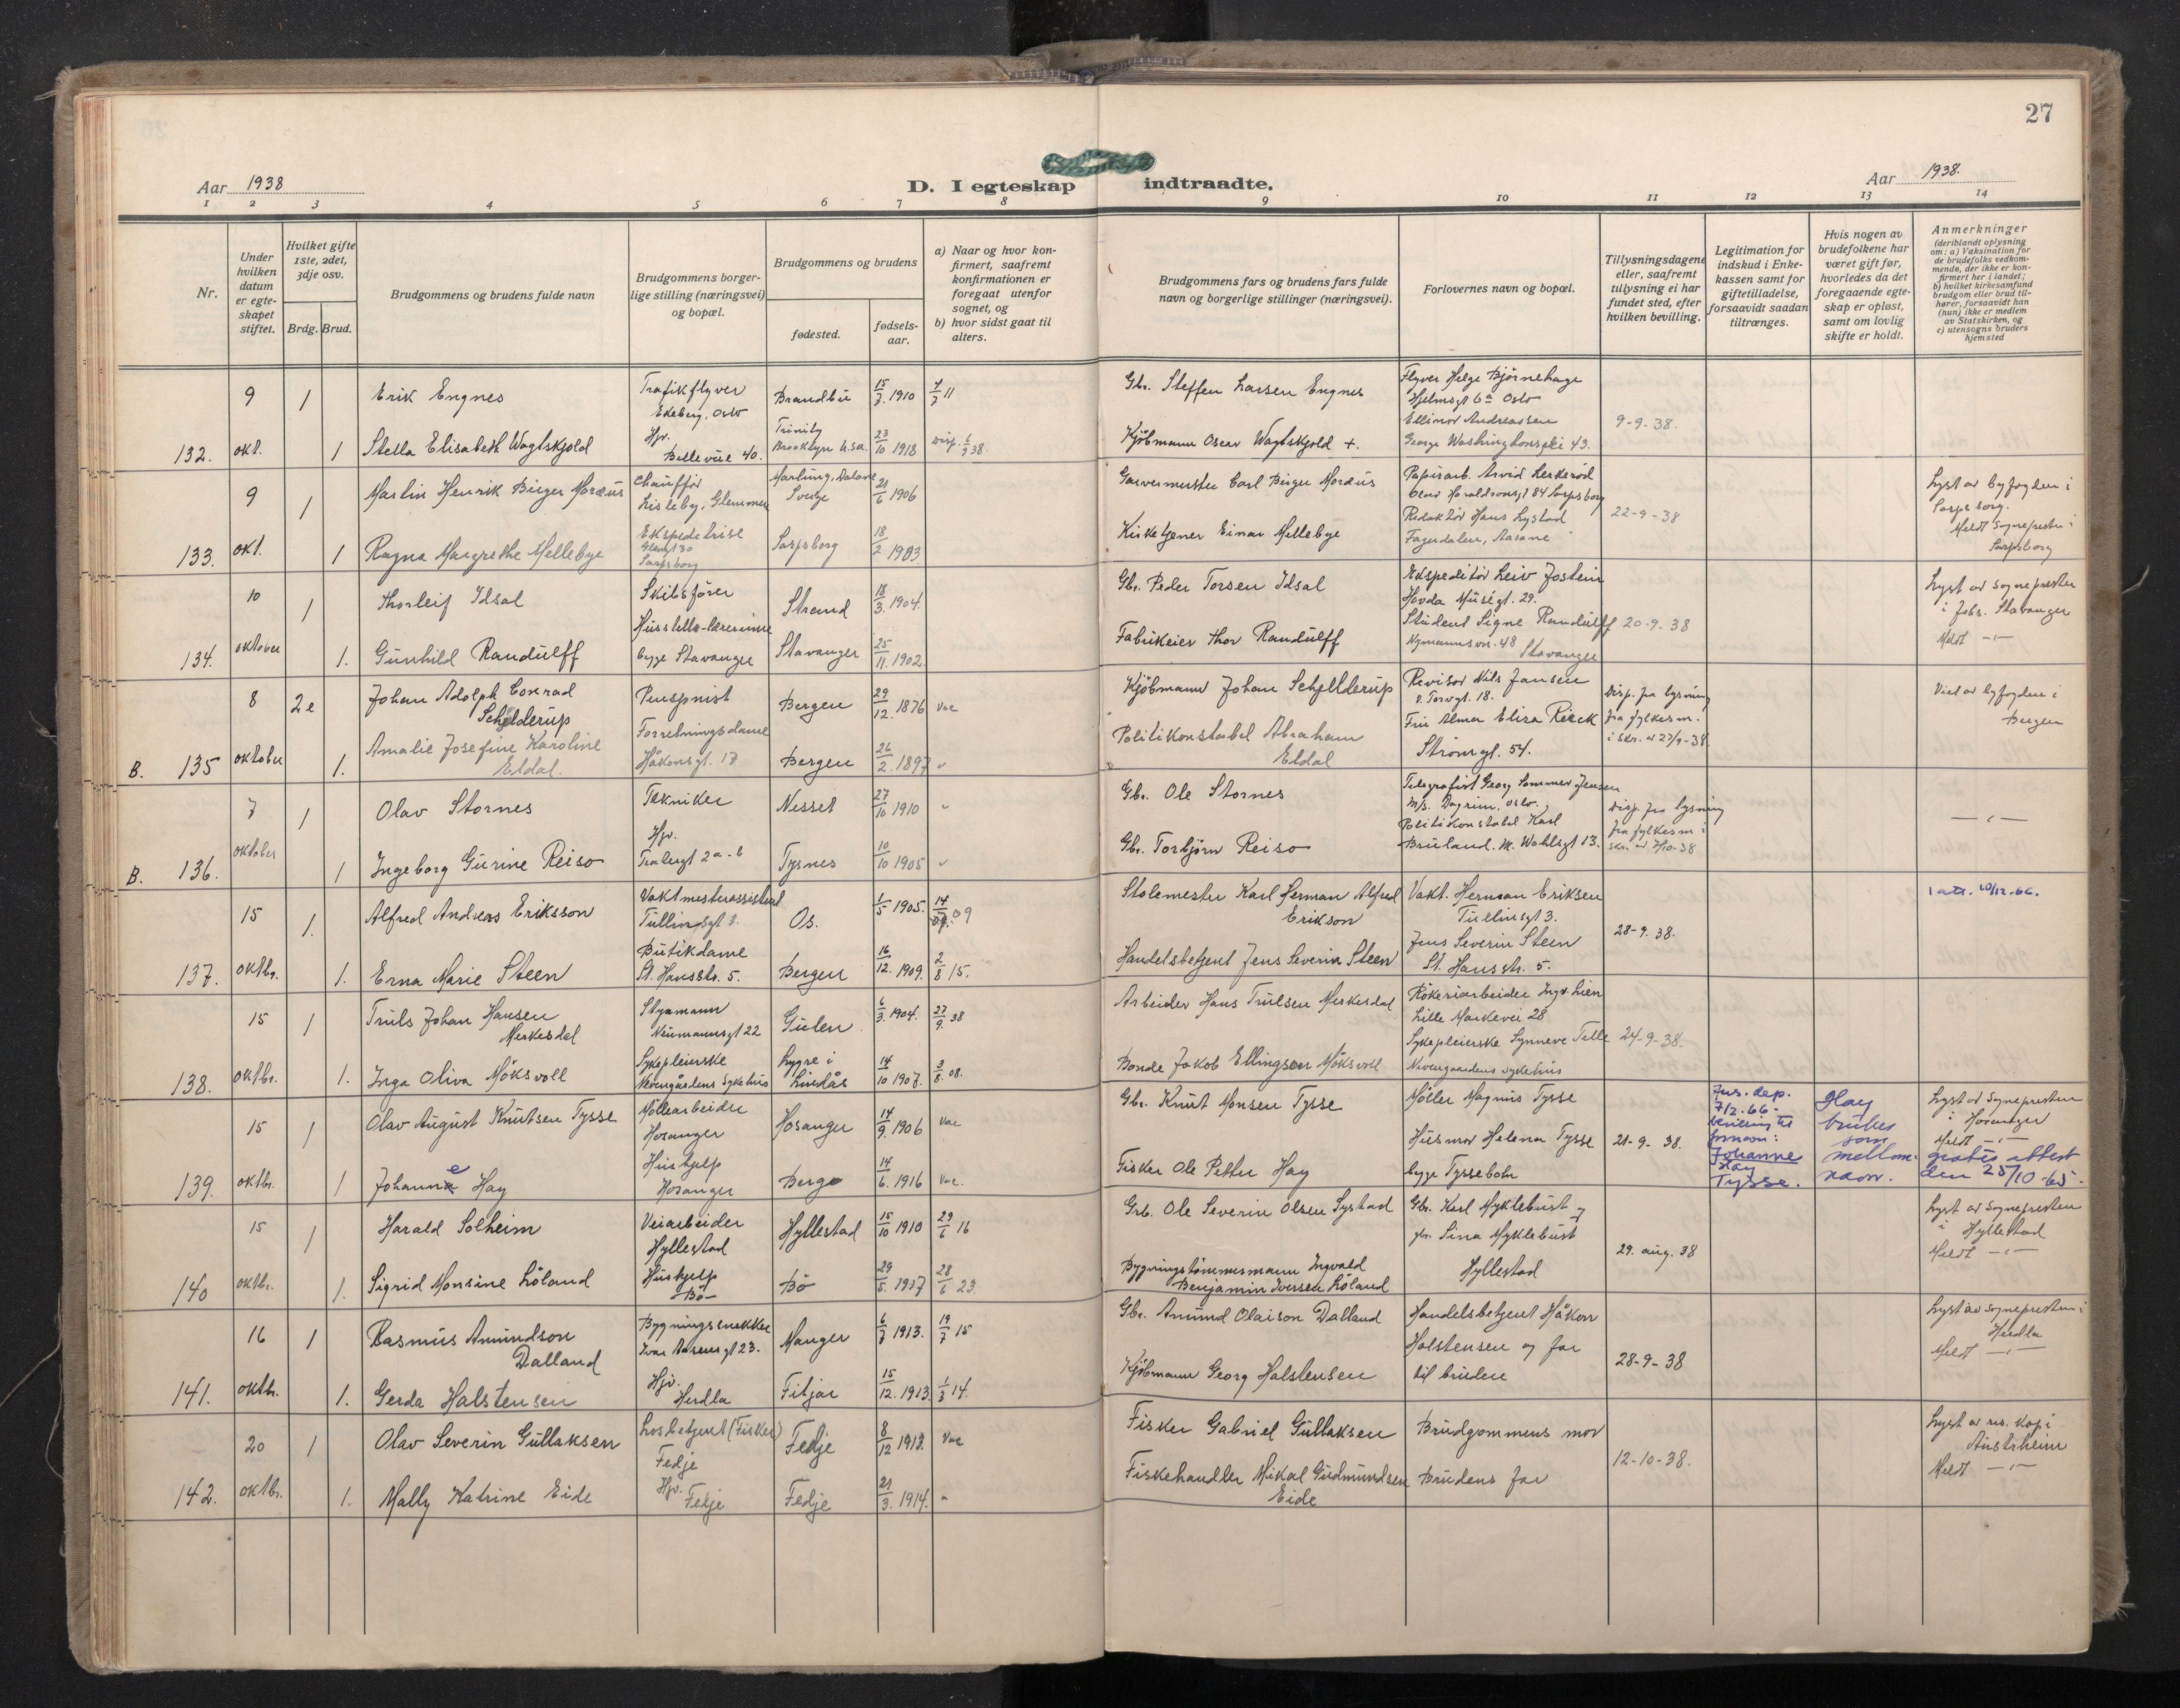 27
Aar 1938
D. I egteskap indtraadte.
Aar 1938.
1 2 3 4 5 6 7 8 9 10 11 12 13 14
Nr.
Under hvilken datum er egteskapet stiftet.
Hvilket gifte 1ste, 2det, 3dje osv.
Brdg. Brud.
Brudgommens og brudens fulde navn
Brudgommens borgerlige stilling (næringsvei) og bopæl.
Brudgommens og brudens
fødested.
fødselsaar.
a) Naar og hvor konfirmert, saafremt konfirmationen er foregaat utenfor sognet, og
b) hvor sidst gaat til alters.
Brudgommens fars og brudens fars fulde navn og borgerlige stillinger (næringsvei).
Forlovernes navn og bopæl.
Tillysningsdagene eller, saafremt tillysning ei har fundet sted, efter hvilken bevilling.
Legitimation for indskud i Enkekassen samt for giftetilladelse, forsaavidt saadan tiltrænges.
Hvis nogen av brudefolkene har været gift før, hvorledes da det foregaaende egteskap er opløst, samt om lovlig skifte er holdt.
Anmerkninger
(deriblandt oplysning om: a) Vaksination for de brudefolks vedkommende, der ikke er konfirmert her i landet; b) hvilket kirkesamfund brudgom eller brud tilhører, forsaavidt han (hun) ikke er medlem av Statskirken, og c) utensogns bruders hjemsted
9 1 Erik Engnes Trafikflyver Ekeberg, Oslo Brandbu 1910 Gbr. Steffen Larsen Engnes Flyver Helge Bjørnehage Hjelmsgt 6a Oslo
132. okt. 1 Stella Elisabeth Wagtskjold Hjv. Bellevue 40. Trinity Brooklyn U.S.A. 23/10 1918 Kjøbmann Oscar Wagtskjold +. Ellinor Andreassen George Washingtonspl 43. 9-9-38.
9 1 Martin Henrik Birger Moræus Chauffør Lisleby, Glemmen 21/6 1906 Garvermester Carl Birger Moræus Papirarb. Arvid Lerkerød Olav Haraldsonsgt 84 Sarpsborg Lyst av byfogden i Sarpsborg.
133. okt. 1 Ragna Margrethe Mellebye Ekspeditrise Sarpsborg Sarpsborg 18/2 1903 Kirketjener Einar Mellebye Redaktør Hans Lystad Fagerdalen, Aasane 22-9-38 Meldt Sognepresten i Sarpsborg
10 1 Thorleif Idsal Skibsfører Strand 18/3. 1904. Gbr. Peder Torsen Idsal Ekspeditør Leiv Jostein Hovda Muségt. 29. Lyst av sognepresten i Jobs. Stavanger
134. oktober 1. Gunhild Randulff Husstell-lærerinne begge Stavanger Stavanger 25/11. 1902. Fabrikeier Thor Randulff Student Signe Randulff Nymannsvn. 48 Stavanger 20-9-38 Meldt -"-
8 2e Johan Adolph Conrad Schjelderup Bergen 29/12. 1876 Vae Kjøbmann Johan Schjellderup Revisor Nils Jansen v. Torvgt. 18. Disp. fra lysning Viet av byfogden i Bergen
B. 135 oktober 1. Amalie Josefine Karoline Eldal. Forretningsdame Håkonsgt. 17 Bergen 26/2. 1897 " Politikonstabel Abraham Eldal Fru Alma Elisa Rieck Strömgt. 54. fra fylkesm. i skr. av 27/9-38.
7 1 Olav Stornes Tekniker Nesset 27/10 1910 " Gbr. Ole Stornes Telegrafist Georg Sommer Jensen M/S. Dagrun, Oslo. Disp. fra lysning -"-
B. 136. oktober 1 Ingeborg Gurine Reiso Hjv. Tysnes 10/10 1905 " Gbr. Torbjørn Reiso Politikonstabel Karl Bruland. M. Wahlsgt 13. fra fylkesm i skr. av 7/10-38
15 1. Alfred Andreas Eriksson Vaktmesterassistent Tullinsgt 3. Os. 1/5 1905. Stolemester Karl Herman Alfred Erikson Vakt. Herman Eriksen Tullinsgt 3. 28-9.38. 1 att. 20/12.66.
137. oktbr. 1. Erna Marie Steen Butikdame St. Hansstr. 5. Bergen 16/12. 1909. 2/8 15. Handelsbetjent Jens Severin Steen Jens Severin Steen St. Hansstr. 5.
15 1 Truls Johan Hansen Merkesdal Styrmann Neumannsgt 22 Gulen 6/3. 1904. 27/9. 38 Arbeider Hans Trulsen Merkesdal Røkeriarbeider Ingv. Lien Lille Markevei 28
138. oktbr. 1. Inga Oliva Möksvoll Sykepleierske Nevengårdens Sykehus Lygre i Lindås 14/10 1907. 3/8. 08. Bonde Jakob Ellingsen Möksvoll Sykepleierske Synneve Telle Nevengaardens sykehus 24-9-38.
15 1 Olav August Knutsen Tysse Möllearbeider Hosanger Hosanger 14/9. 1906 Vae Gbr. Knut Monsen Tysse Möller Magnus Tysse Jus. dep. 7/2.66- bevilling til fornavn: Hay brukes som Lyst av Sognepresten i Hosanger Meldt -"-
139. oktbr. 1 Johanne Hay Hushjelp Hosanger Berge 14/6. 1916 Vae. Fisker Ole Petter Hay Husmor Helena Tysse begge Tyssebotn 21-9-38. Johanne Hay Tysse. mellomnavn. gratis attest den 25/10-65.
15 1 Harald Solheim Veiarbeider Hyllestad Hyllestad 15/10 1910 29/6 16 Grb. Ole Severin Olsen Systad Gbr. Karl Myklebust og fr. Sina Myklebust Lyst av Sognepresten i Hyllestad
140 oktbr. 1. Sigrid Monsine Löland Hushjelp Bö Bö 29/5. 1907 28/6 23. Bygningstömmermann Ingvald Benjamin Iversen Löland Hyllestad 29. aug. 38 Meldt -"-
16 1 Rasmus Amundson Dalland Bygningssnekker Ivar Aasensgt 23. Manger 6/7 1913. 19/7 15 Gbr. Amund Olaison Dalland Handelsbetjent Håkon Halstensen og far Lyst av sognepresten i Herdla
141. oktbr. 1. Gerda Halstensen Hjv. Herdla Fitjar 15/12. 1913. 1/3 14. Kjøbmann Georg Halstensen til bruden 28-9-38 Meldt -"-
20 1 Olav Severin Gullaksen Losbetjent (Fisker) Fedje Fedje 8/12 Vae Fisker Gabriel Gullaksen Brudgommens mor Lyst av res. kap i Austrheim
142. oktbr. 1. Mally Katrine Eide Hjv. Fedje Fedje 21/3. 1914. " Fiskehandler Mikal Gudmundsen Eide Brudens far 12-10-38. Meldt -"-